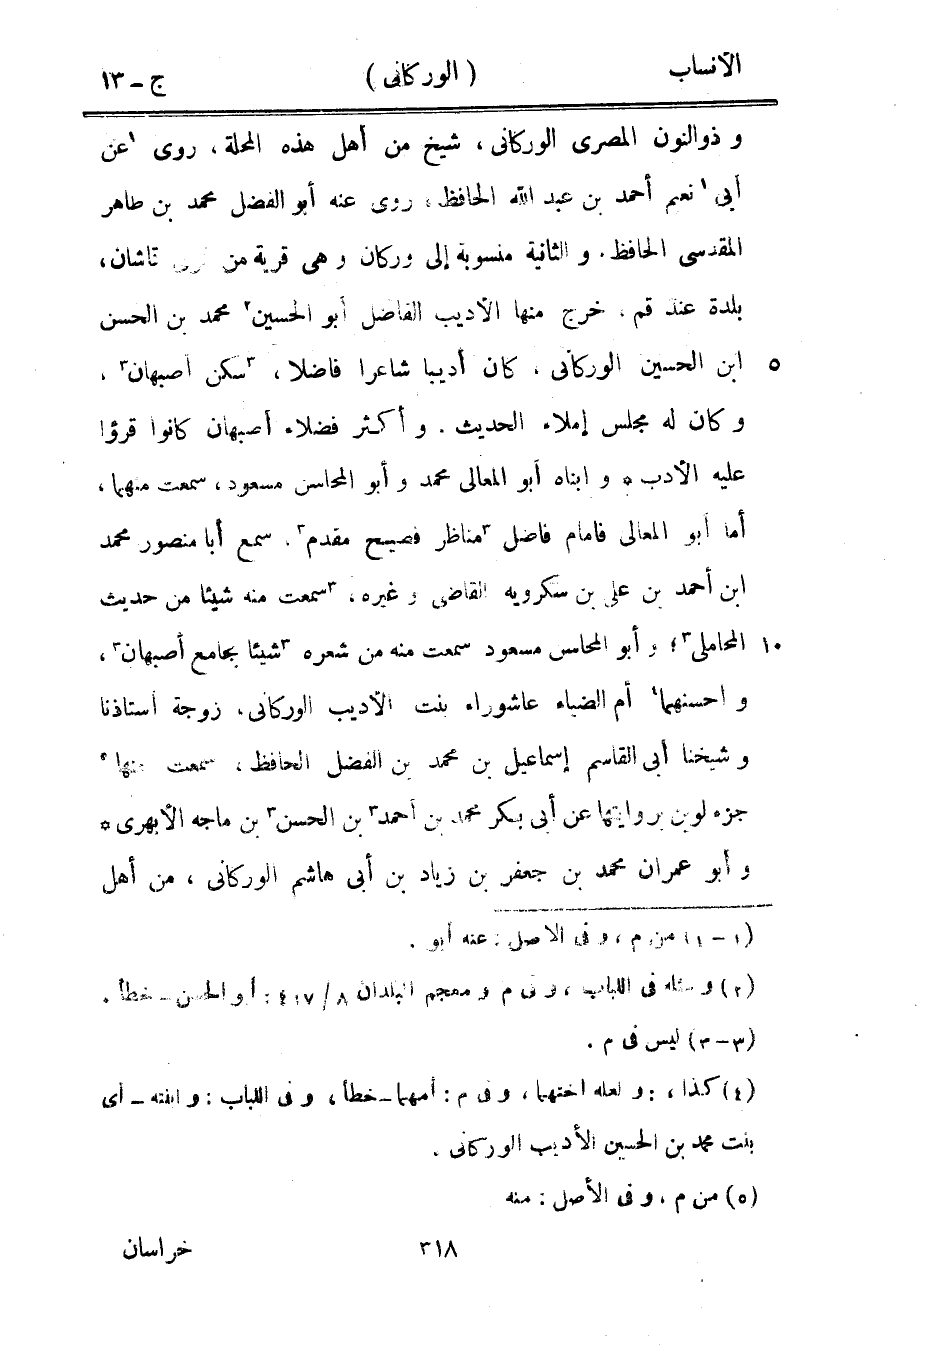 الأنساب (الوركانى) ج - ١٣
و ذوالنون المصرى الوركانى، شيخ من أهل هذه المحلة، روى ١عن
أبى١ نعيم أحمد بن عبد الله الحافظ، روى عنه أبو الفضل محمد بن طاهر
المقدسى الحافظ. و الثانية منسوبة إلى وركان و هى قرية من قرى قاشان،
بلدة عند قم، خرج منها الأديب الفاضل أبو الحسين٢ محمد بن الحسن
٥ ابن الحسين الوركانى، كان أديبا شاعرا فاضلا، ٣سكن أصبهان٣،
و كان له مجلس إملاء الحديث. و أكثر فضلاء أصبهان كانوا قرؤا
عليه الأدب * و ابناه أبو المعالى محمد و أبو المحاسن مسعود، سمعت منهما،
أما أبو المعالى فامام فاضل ٣مناظر فصيح مقدم٣. سمع أبا منصور محمد
ابن أحمد بن على بن شكرويه القاضى و غيره، ٣سمعت منه شيئا من حديث
١٠ المحاملى٣؛ و أبو المحاسن مسعود سمعت منه من شعره ٣شيئا بجامع أصبهان٣،
و احسنهما٤ أم الضياء عاشوراء بنت الأديب الوركانى، زوجة أستاذنا
و شيخنا أبى القاسم إسماعيل بن محمد بن الفضل الحافظ، سمعت منها٥
جزء لوين بروايتها عن أبى بكر محمد بن أحمد٣ بن الحسن٣ بن ماجه الأبهرى *
و أبو عمران محمد بن جعفر بن زياد بن أبى هاشم الوركانى، من أهل
(١ - ١) من م، و فى الأصل: عنه أبو.
(٢) و مثله فى اللباب، و فى م و معجم البلدان ٨ / ٤١٧: أبو الحسن - خطأ.
(٣ - ٣) ليس فى م.
(٤) كذا، و لعله اختهما، و فى م: أمهما - خطأ، و فى اللباب: و ابنته - أى
بنت محمد بن الحسين الأديب الوركانى.
(٥) من م، و فى الأصل: منه
٣١٨ خراسان